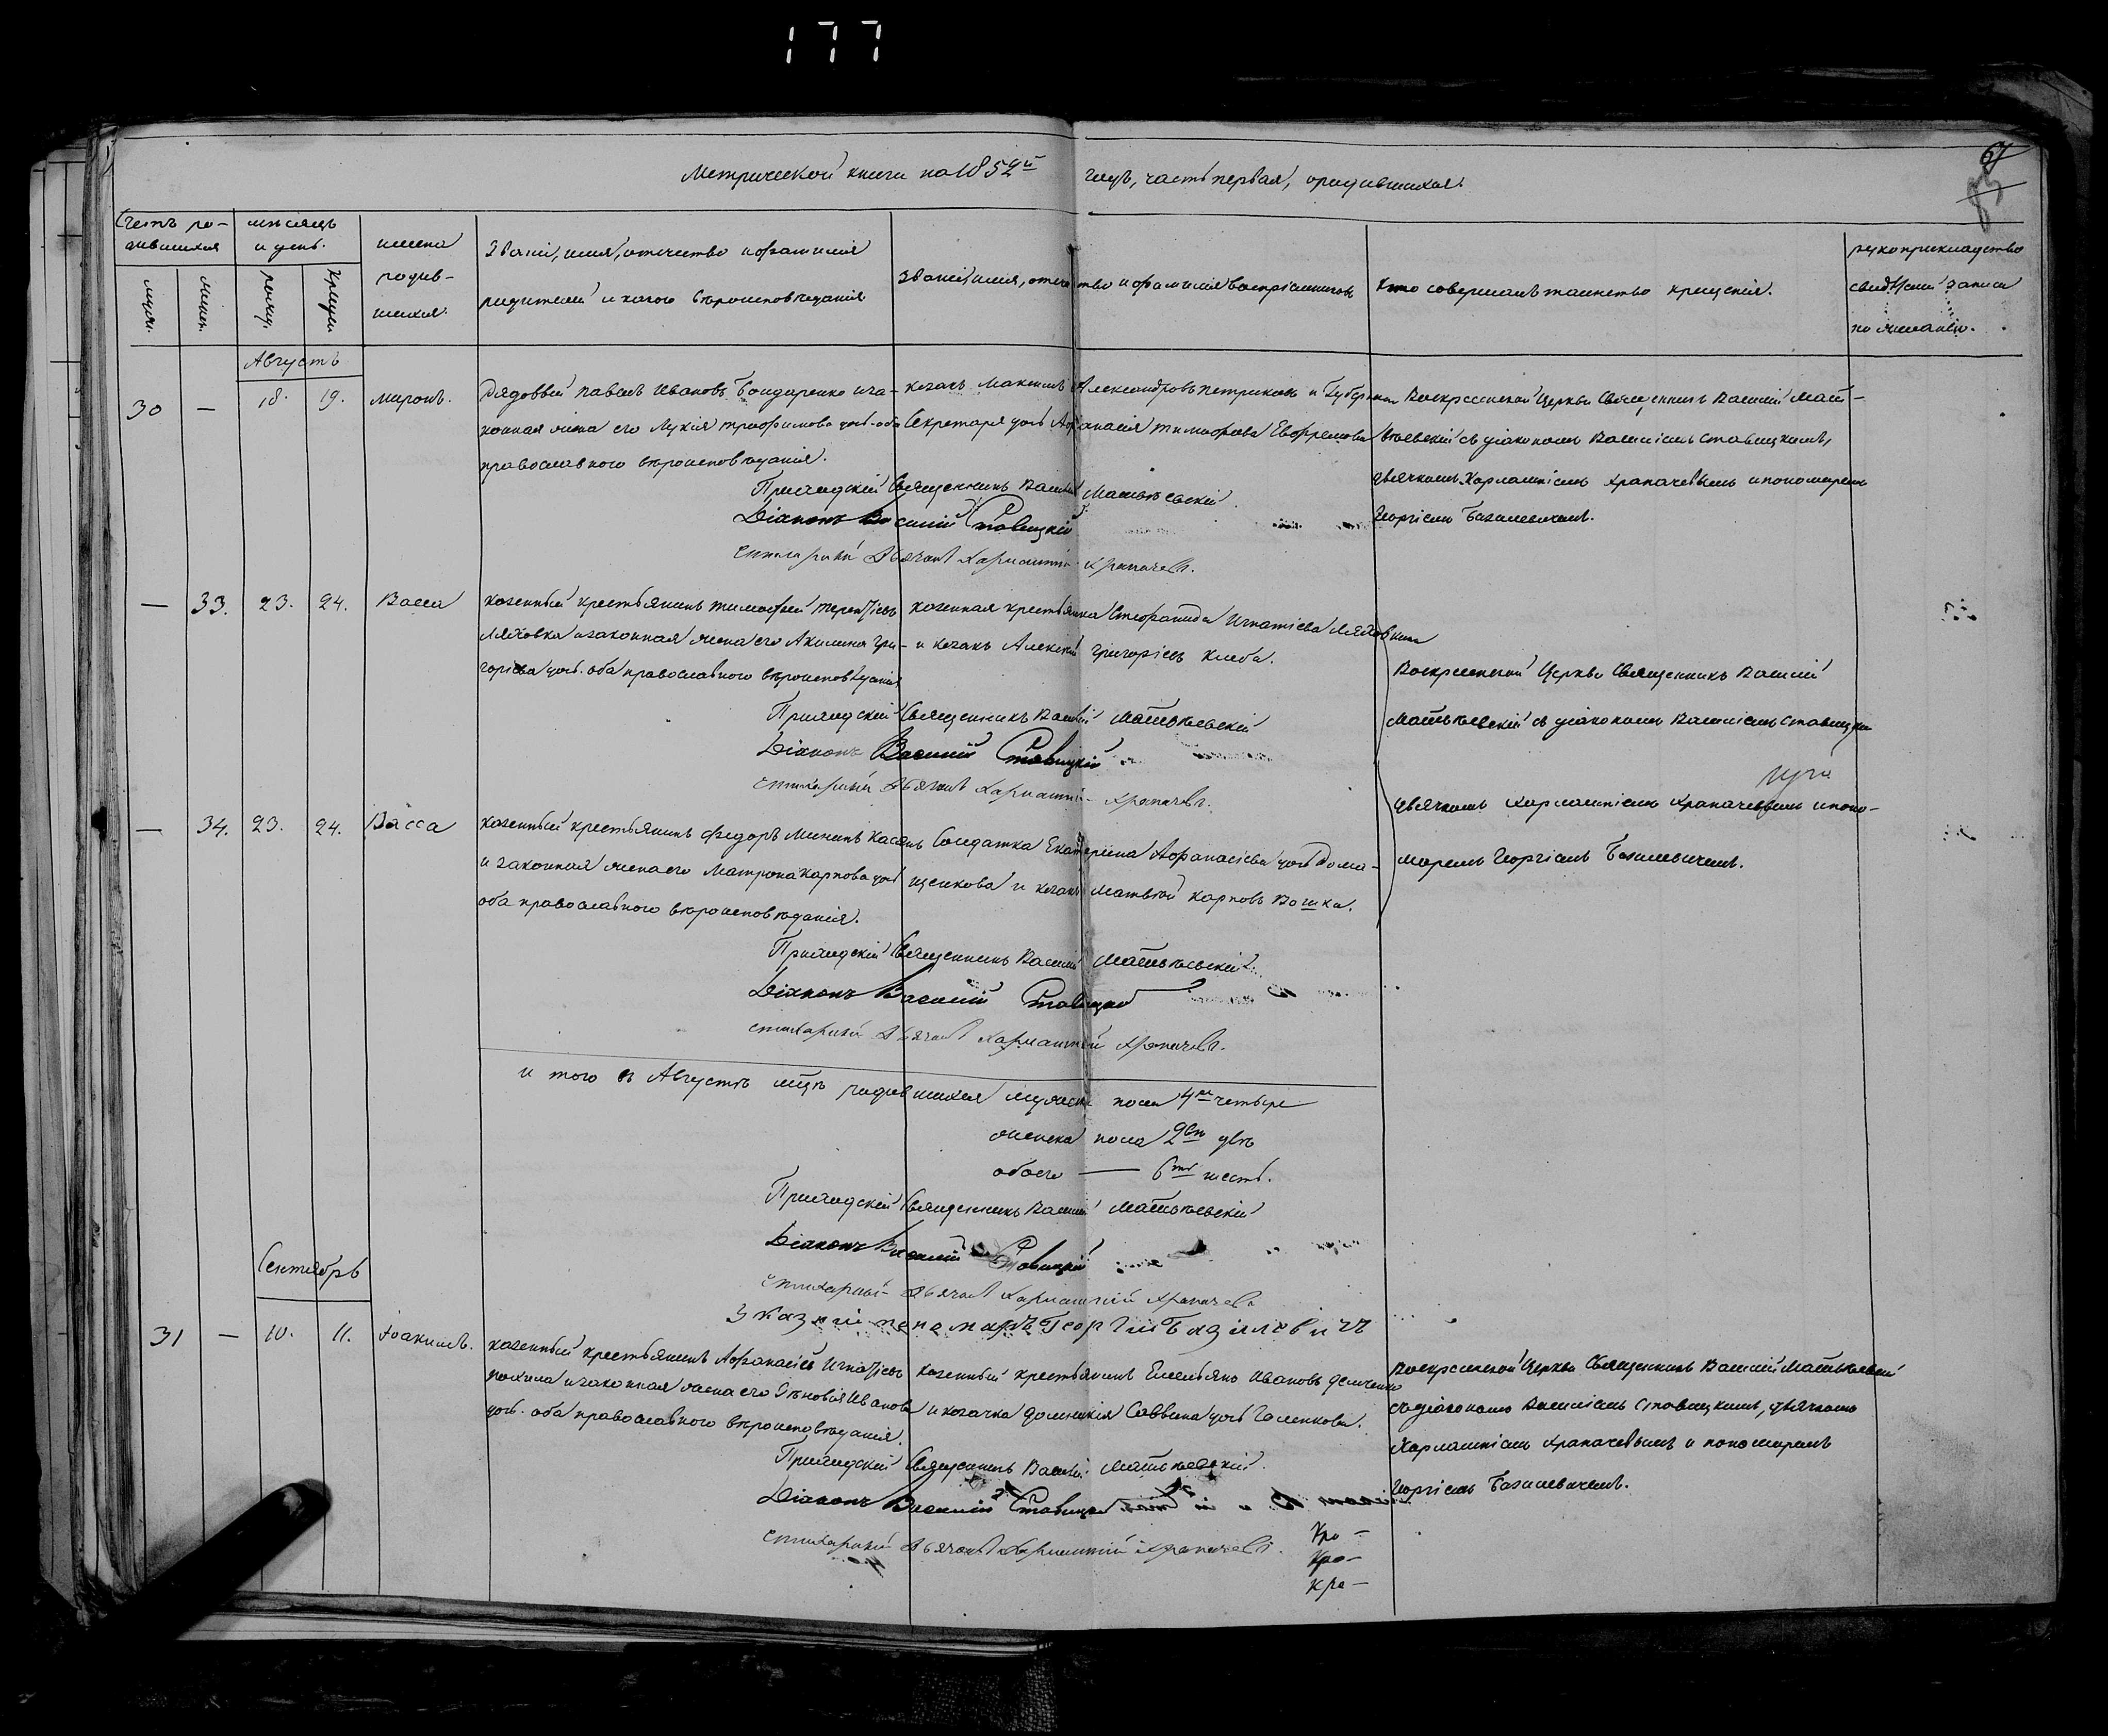 177
67
83
Метрической книги на 1852й годъ, часть первая, о родившихся.
Счетъ ро-
дившихся
мѣсяцъ
и день.
имена
родив-
шихся.
Званіе, имя, отечество и фамилія
родителей и какого вѣроисповѣданія
званіе, имя, отечество и фамилія воспріемниковъ
Кто совершалъ таинство крещенія.
рукоприкладство
свидѣтелей записи
по желанію.
муж.
женс.
рожд.
крещен.
Августъ
30 — 18. 19. Миронъ.
Рядовый Павелъ Ивановъ Бондаренко и за-
конная жена его Лукія Трофимова дочь оба
православного вѣроисповѣданія.
козакъ Максимъ Александровъ Петрикъ и Губернскаго
Секретаря дочь Афанасія Тимофѣева Ефремова
Воскресенской Церкви Священникъ Василій Мать-
вѣевскій съ діакономъ Василіемъ Ставицкимъ,
дьячкомъ Харлампіемъ Храпачевымъ и пономаремъ
Георгіемъ Базилевичемъ.
Приходскій Священникъ Василій Матвѣевскій
Діаконъ Василій Ставицкій
стихарный дьячокъ Харлампій Храпачевъ.
— 33. 23. 24. Васса
казенный крестьянинъ Тимофей Терентіевъ
Ляховка и законная жена его Акилина Гри-
горіева дочь. оба православного вѣроисповѣданія
казенная крестьянка Стефанида Игнатіева Ляховкина
и козакъ Алексѣй Григоріевъ Хиеба.
Воскресенской Церкви Священникъ Василій
Матвѣевскій съ діакономъ Василіемъ Ставицким
дьячкомъ Харлампіемъ Храпачевымъ и поно-
маремъ Георгіемъ Базилевичемъ.
Приходскій Священникъ Василій Матвѣевскій
Діаконъ Василій Ставицкій
стихарный дьячокъ Харлампій Храпачевъ.
— 34. 23. 24. Васса
казенный крестьянинъ Федоръ Мининъ Касянъ
и законная жена его Матрона Карпова дочь
оба православного вѣроисповѣданія.
Солдатка Екатерина Афанасіева дочь Дома-
щенкова и козакъ Матвѣй Карповъ Вошка.
Приходскій Священникъ Василій Матвѣевскій
Діаконъ Василій Ставицкій
стихарный дьячокъ Харлампій Храпачевъ.
итого въ Августѣ мцѣ родившихся мужеска пола 4ре четыре
женска пола 2вѣ двѣ
обоего — 6ть шесть.
Приходскій Священникъ Василій Матвѣевскій
Діаконъ Василій Ставицкій
стихарный дьячокъ Харлампій Храпачевъ
Указній пономаръ Георгій Базілевичъ
Сентябрь
31 — 10. 11. Іоакимъ.
казенный крестьянинъ Афанасій Игнатіевъ
и законная жена его Зѣновія Иванова
дочь. оба православного вѣроисповѣданія.
казенный крестьянинъ Емельянъ Ивановъ Демченко
и козачка Домникія Саввина дочь Галенкова.
Воскресенской Церкви Священникъ Василій Матвѣевскій
съ діакономъ Василіемъ Ставицкимъ, дьячкомъ
Харлампіемъ Храпачевымъ и пономаремъ
Георгіемъ Базилевичемъ.
Приходскій Священникъ Василій Матвѣевскій.
Діаконъ Василій Ставицкій
стихарный дьячокъ Харлампій Храпачевъ.
Хра-
Хра-
Хра-